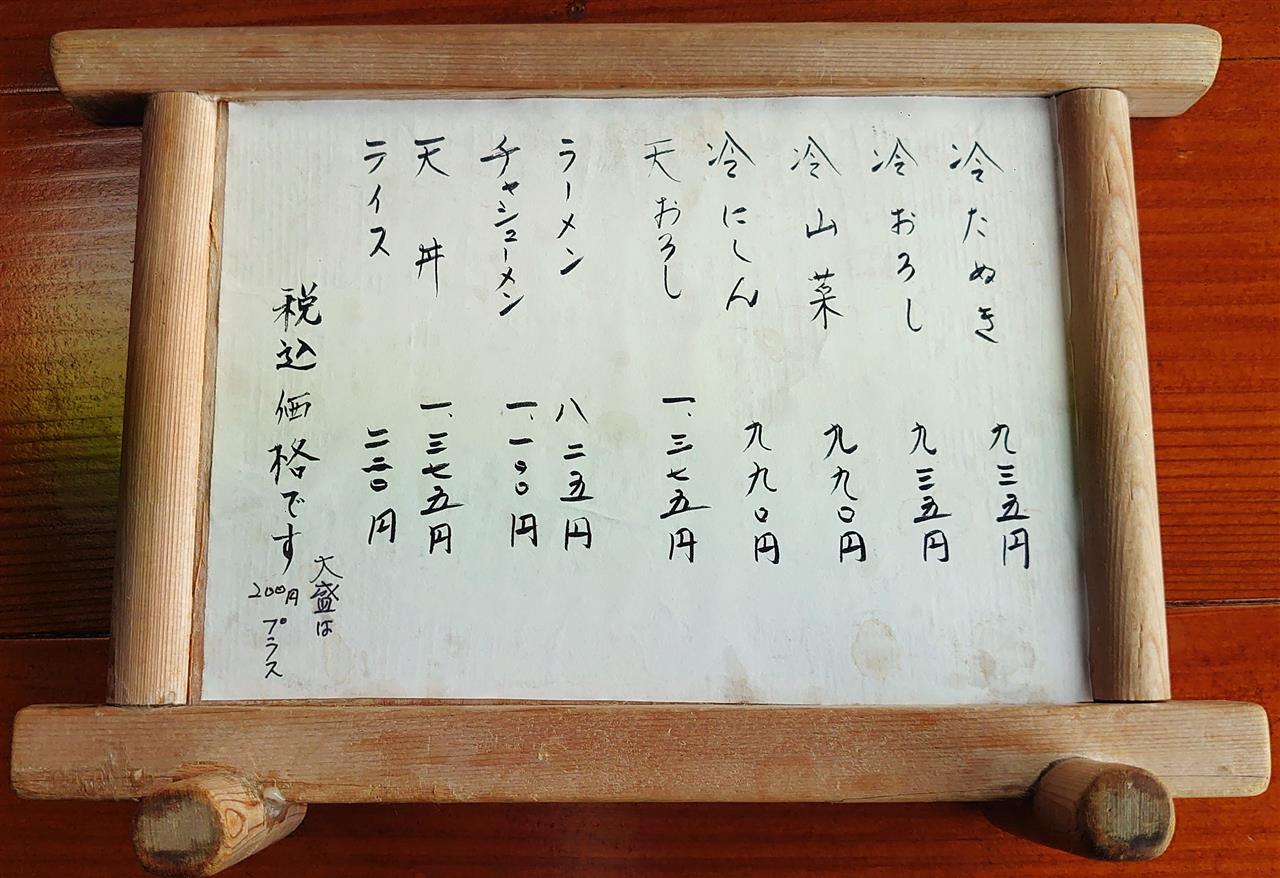 冷たぬき 九三五円
冷おろし 九三五円
冷山菜 九九〇円
冷にしん 九九〇円
天おろし 一、三七五円
ラーメン 八二五円
チャシューメン 一、一〇〇円
天丼 一、三七五円
ライス 二二〇円
税込価格です
大盛は
200円プラス